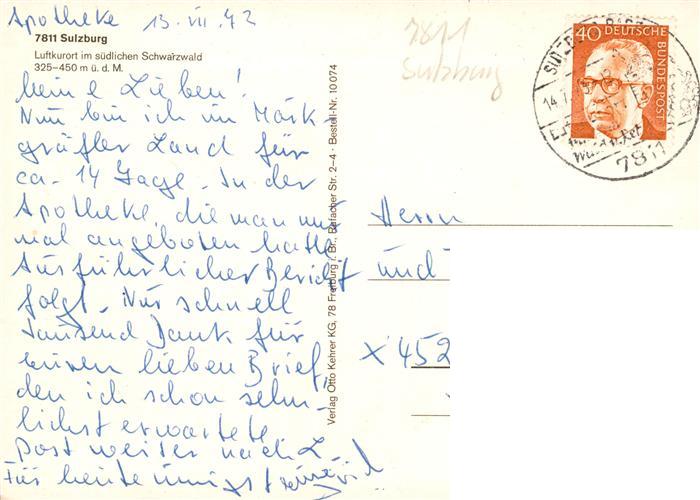 Apotheke 13. VII. 72
7811 Sulzburg
Luftkurort im südlichen Schwarzwald
325–450 m ü. d. M.
Meine Lieben!
Nun bin ich im Mark
gräfler Land für
ca. 14 Tage. In der
Apotheke, die man mir
mal angeboten hatte.
Ausführlicher Bericht
folgt. Nur schnell
Tausend Dank für
euren lieben Brief,
den ich schon sehn-
lichst erwartete
Post weiter nach L.
Für heute innigst
Verlag Otto Kehrer KG, 78 Freiburg i. Br., Rafacher Str. 2–4 · Bestell-Nr. 10 074
7811
Sulzburg
40 DEUTSCHE
BUNDESPOST
7811
Herrn
und
X 452